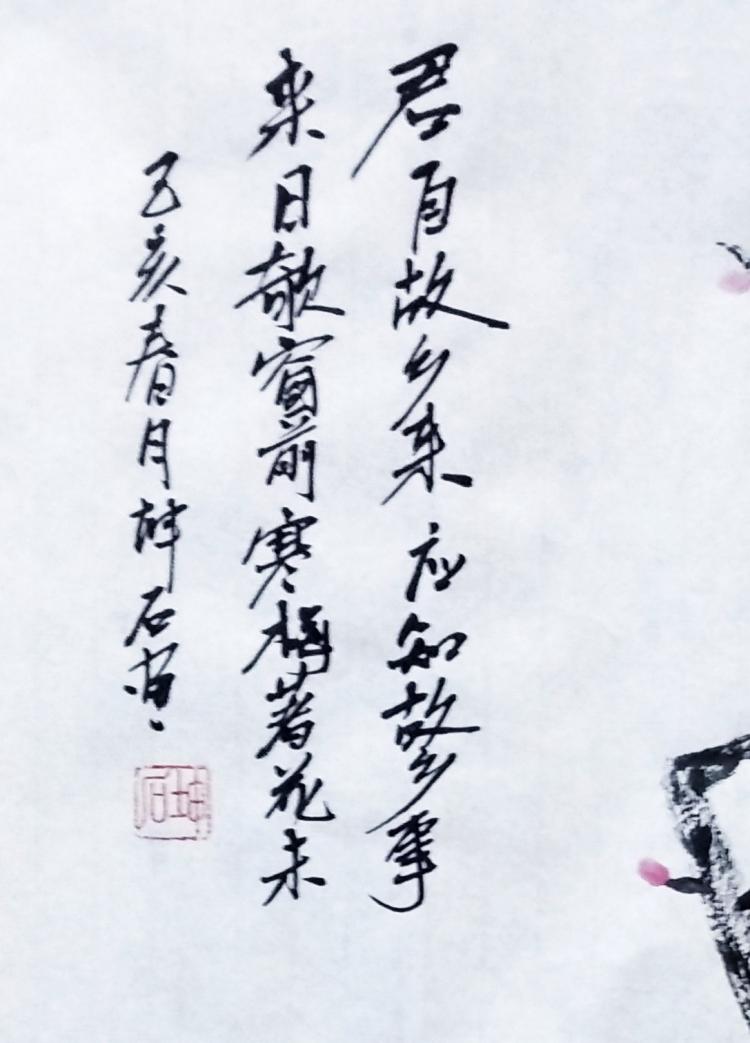 君自故乡来应知故乡事
来日欹窗前寒梅著花未
己亥春月坤石画
坤石